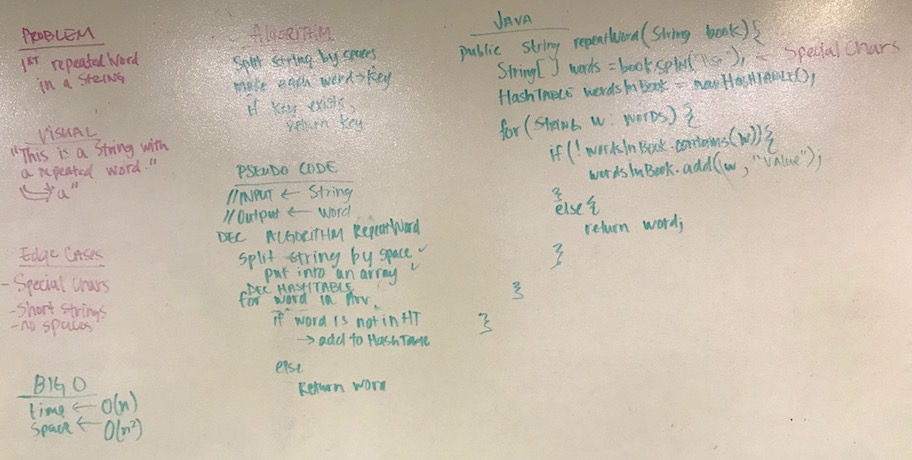 PROBLEM
1ST repeated Word
in a STRING
VISUAL
"This is a String with
a repeated word."
"a"
Edge Cases
- Special Chars
- Short strings
- no spaces
BIG O
time ← O(n)
space ← O(n²)
ALGORITHM
Split string by spaces
make each word → Key
if Key exists,
return Key
PSEUDO CODE
//INPUT ← String
//Output ← Word
DEC ALGORITHM RepeatWord
split string by space ✓
put into an array ✓
DEC HASHTABLE
for word in Arr
if word is not in HT
→ add to HashTable
else
Return word
JAVA
public String repeatWord(String book){
String[] words = book.split("\s+"); - Special Chars
HashTABLE wordsInBook = new HASHTABLE();
for(String w: words) {
if(!wordsInBook.contains(w)){
wordsInBook.add(w, "value");
}
else{
return word;
}
}
}